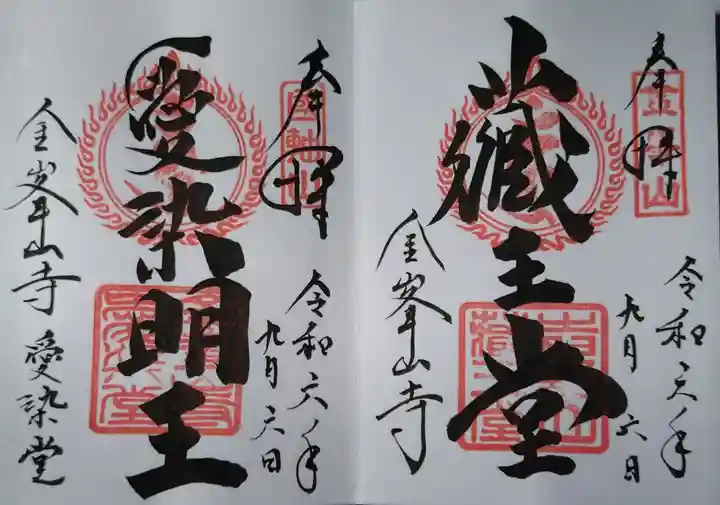 奉拝
金峯山
令和六年
九月六日
蔵王堂
金峯山寺
奉拝
国軸山
令和六年
九月六日
愛染明王
金峯山寺 愛染堂